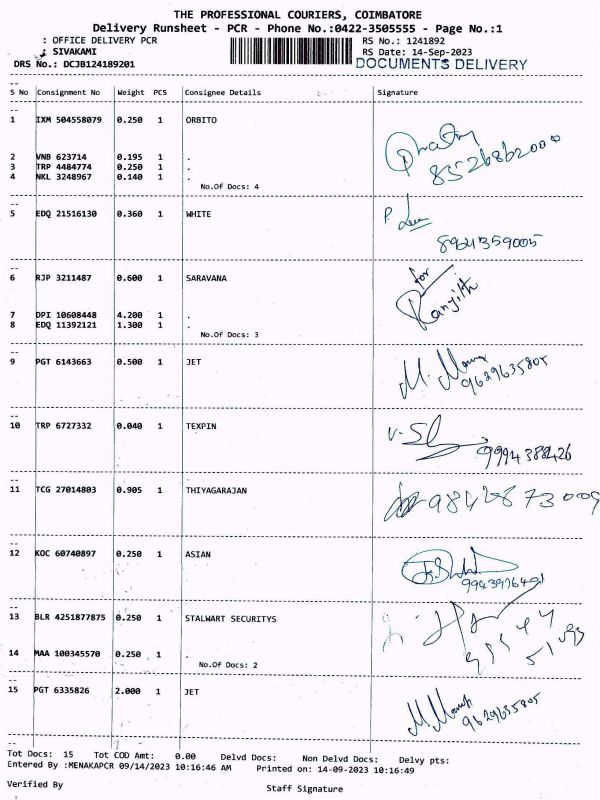 THE PROFESSIONAL COURIERS, COIMBATORE
Delivery Runsheet - PCR - Phone No.:0422-3505555 - Page No.:1
: OFFICE DELIVERY PCR RS No.: 1241892
: SIVAKAMI RS Date: 14-Sep-2023
DRS No.: DCJB124189201 DOCUMENTS DELIVERY
S No Consignment No Weight PCS Consignee Details Signature
1 IXM 504558079 0.250 1 ORBITO
8526862000
2 VNB 623714 0.195 1 .
3 TRP 4484774 0.250 1 .
4 NKL 3248967 0.140 1 .
No.Of Docs: 4
5 EDQ 21516130 0.360 1 WHITE
8921359005
6 RJP 3211487 0.600 1 SARAVANA for
Ranjith
7 DPI 10608448 4.200 1 .
8 EDQ 11392121 1.300 1 .
No.Of Docs: 3
9 PGT 6143663 0.500 1 JET
9629635805
10 TRP 6727332 0.040 1 TEXPIN
9994388426
11 TCG 27014803 0.905 1 THIYAGARAJAN
9842873009
12 KOC 60740897 0.250 1 ASIAN
9943976491
13 BLR 4251877875 0.250 1 STALWART SECURITYS
14 MAA 100345570 0.250 1 .
No.Of Docs: 2
15 PGT 6335826 2.000 1 JET
9629635805
Tot Docs: 15 Tot COD Amt: 0.00 Delvd Docs: Non Delvd Docs: Delvy pts:
Entered By :MENAKAPCR 09/14/2023 10:16:46 AM Printed on: 14-09-2023 10:16:49
Verified By Staff Signature